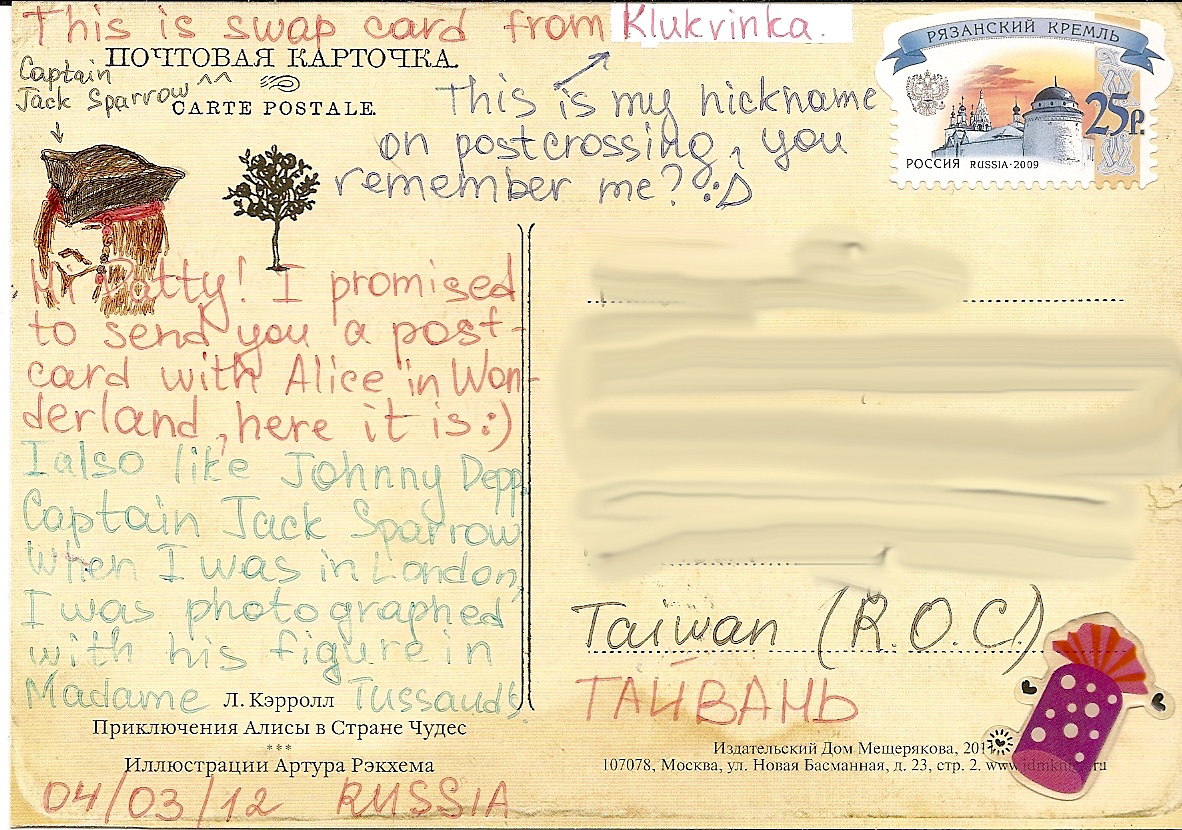 This is swap card from Klukvinka.
ПОЧТОВАЯ КАРТОЧКА.
CARTE POSTALE.
Captain
Jack Sparrow ^^
This is my nickname
on postcrossing, you
remember me? :D
РЯЗАНСКИЙ КРЕМЛЬ
25р.
РОССИЯ RUSSIA·2009
Hi Patty! I promised
to send you a post-
card with Alice in Won-
derland, here it is:)
I also like Johnny Depp
Captain Jack Sparrow
When I was in London,
I was photographed
with his figure in
Madame Tussauds.
Л. Кэрролл
Приключения Алисы в Стране Чудес
***
Иллюстрации Артура Рэкхема
04/03/12 RUSSIA
Taiwan (R.O.C.)
ТАЙВАНЬ
Издательский Дом Мещерякова,
107078, Москва, ул. Новая Басманная, д. 23, стр. 2.